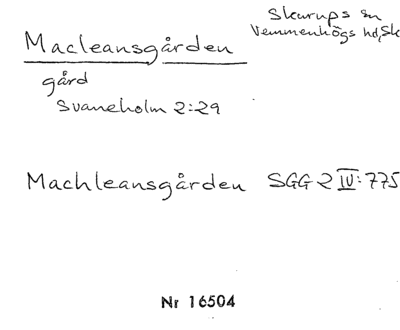 Skurups sn
Vemmenhögs hd, Sk
Macleansgården
gård
Svaneholm 2:29
Machleansgården SGG 2 IV:775
Nr 16504